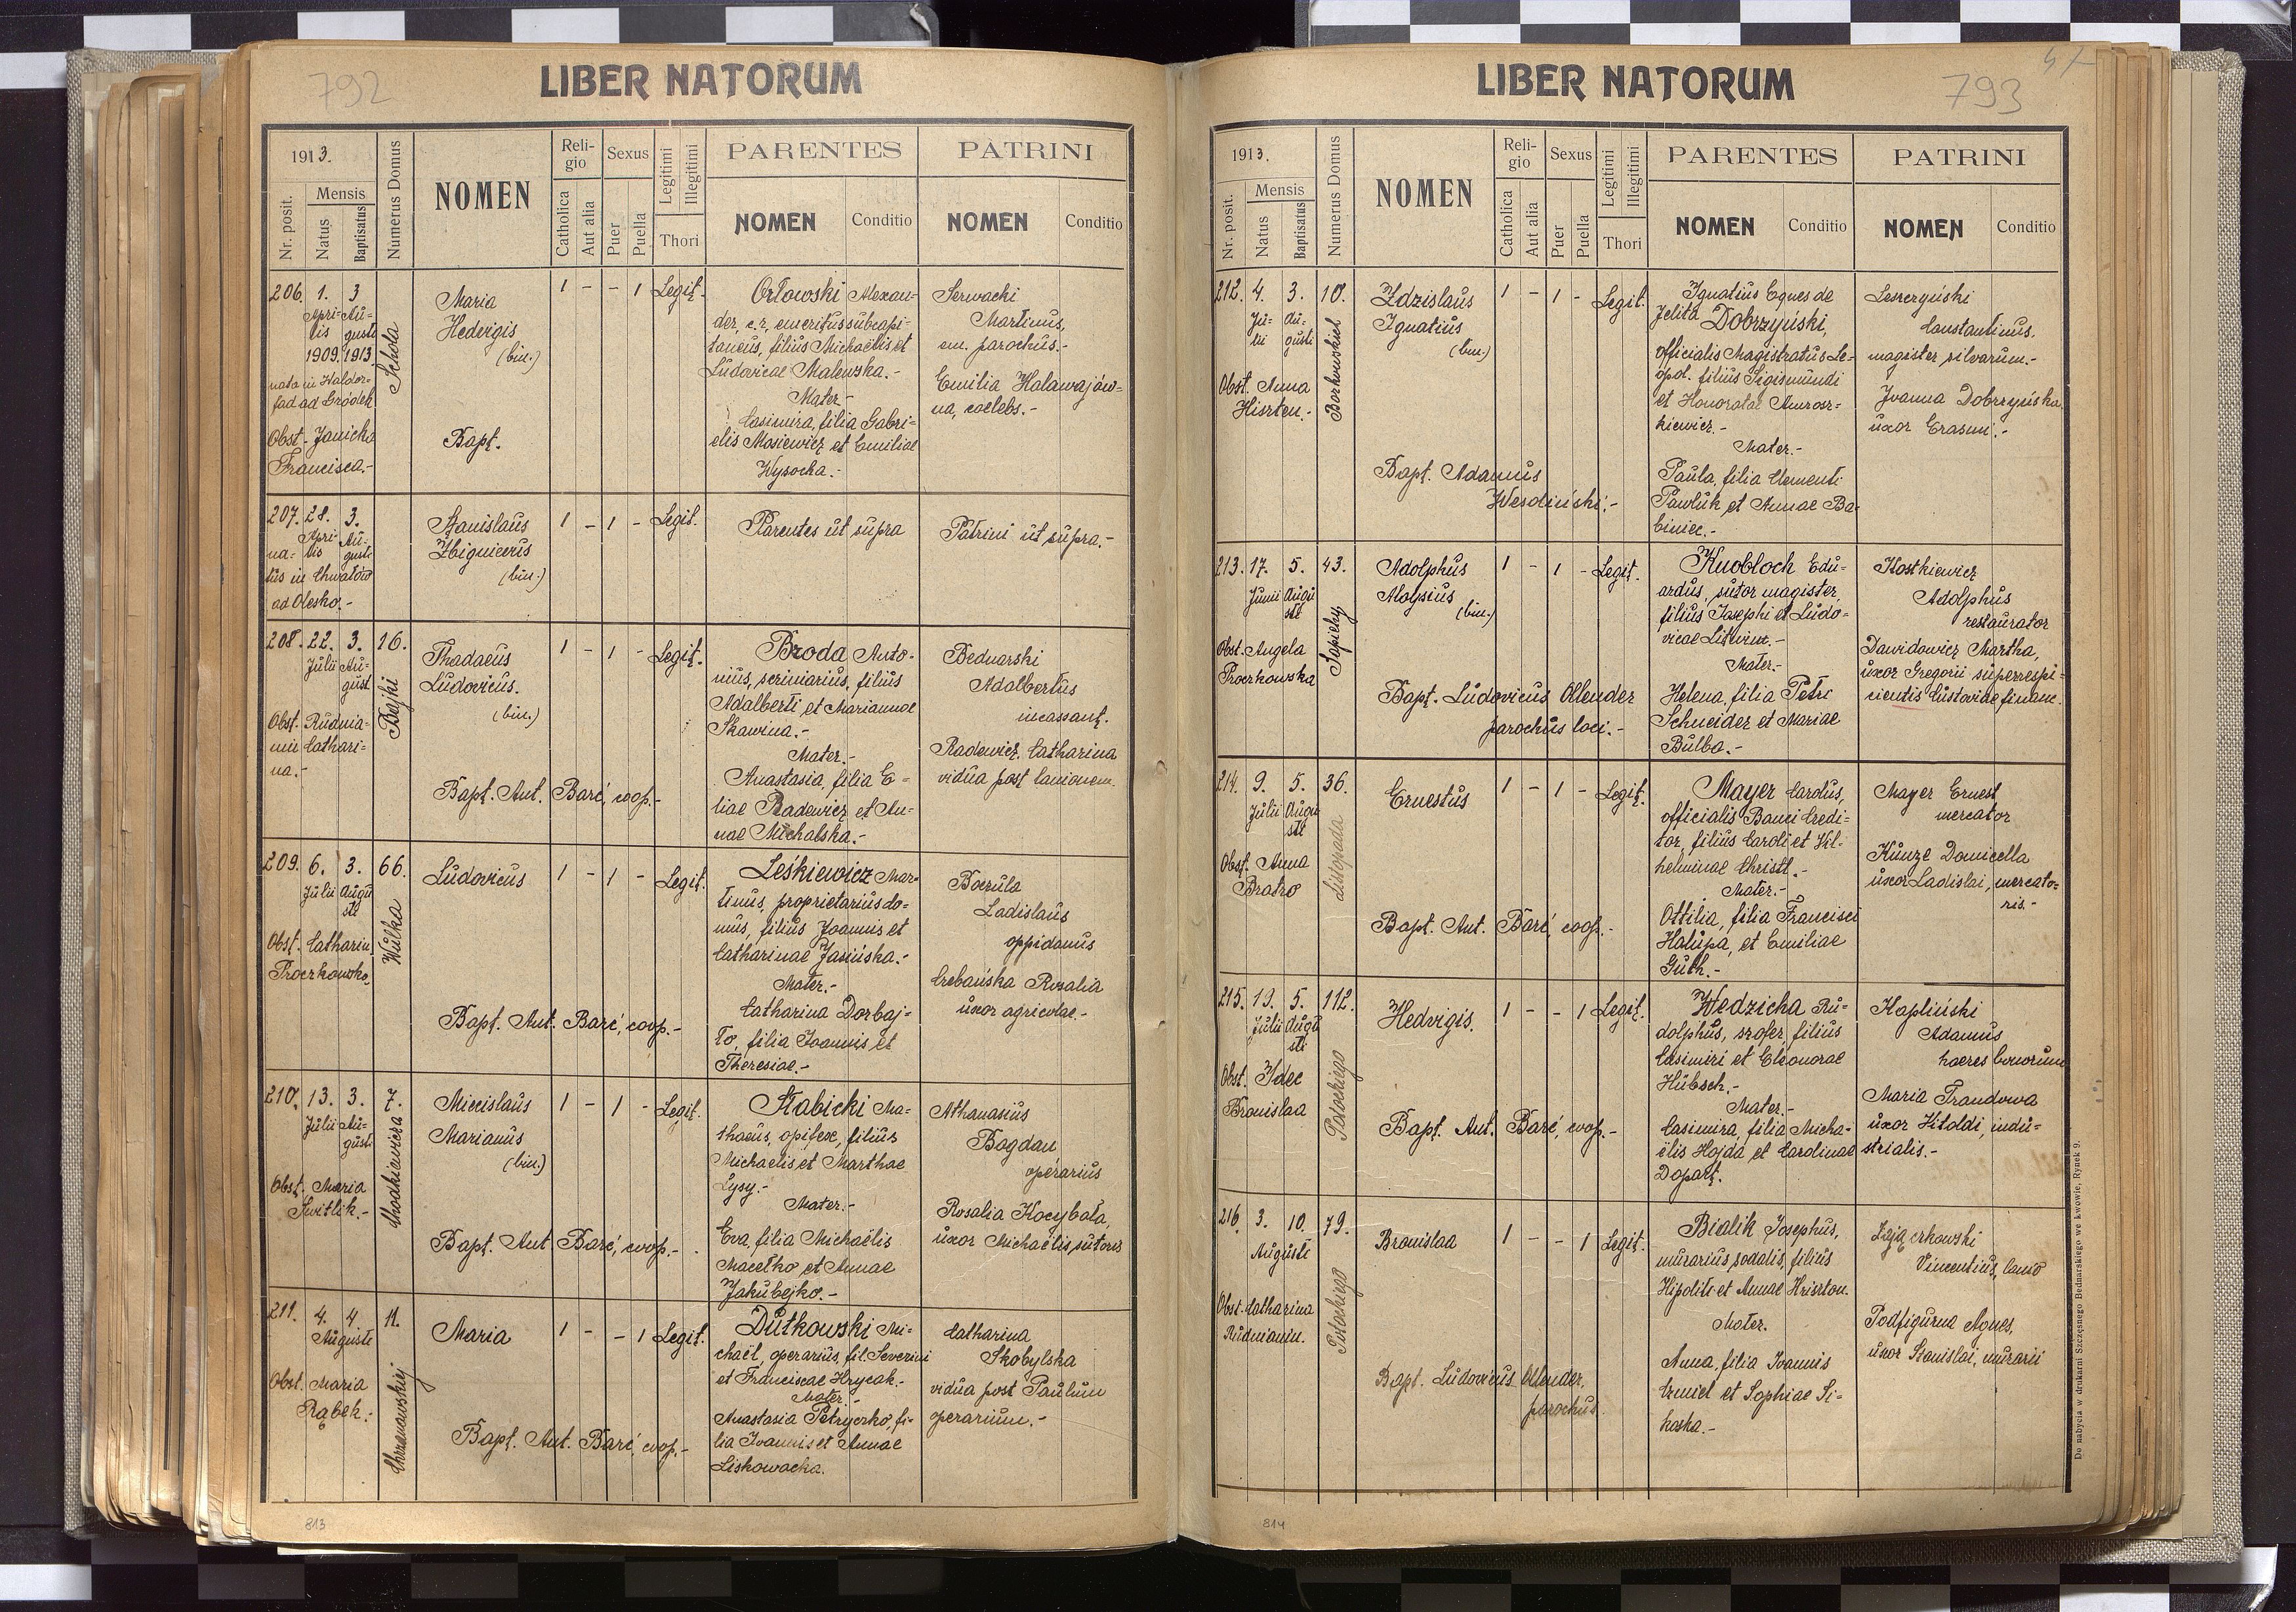 792
LIBER NATORUM
1913.
Nr. posit.
Mensis
Natus
Baptisatus
Numerus Domus
NOMEN
Reli-
gio
Catholica
Aut alia
Sexus
Puer
Puella
Legitimi
Illegitimi
Thori
PARENTES
NOMEN
Conditio
PATRINI
NOMEN
Conditio
206. 1. 3
Apri- Au-
lis gusti
1909. 1913
nata in
fad ad Gródek
Obst. Janicka
Francisca.-
Schola
Maria
Hedvigis
(bin.)
Bapt.
1 - - 1 Legit.
Orłowski Alexan-
der, c.r. emeritus subcapi-
taneus, filius Michaelis et
Ludovicae Malewska.-
Mater.-
Casimira, filia Gabri-
elis Mosiewicz et Emiliae
Wysocka.-
Serwacki
Martinus,
em. parochus.-
Emilia Halawajów-
na, caelebs.-
207. 28. 3.
Apri- Au-
na- lis gusti
tus in Chwatów
ad Olesko.-
Stanislaus
Zbignievus
(bin.)
1 - 1 - Legit.
Parentes ut supra
Patrini ut supra.-
208. 22. 3. 16.
Julii Au-
gust
Obst. Rudnia-
nin Cathari-
na.-
Bajki
Thadaeus
Ludovicus.
(bin.)
Bapt. Ant. Barć, coop.-
1 - 1 - Legit.
Broda Anto-
nius, scriniarius, filius
Adalberti et Mariannae
Skawina.-
Mater.-
Anastasia, filia E-
liae Radewicz et An-
nae Michalska.-
Bednarski
Adalbertus
incassant.
Radewicz Catharina
vidua post lanionem.
209. 6. 3. 66.
Julii Augu
sti
Obst. Catharin.
Proczkowska
Wulka
Ludovicus
Bapt. Ant. Barć, coop.-
1 - 1 - Legit.
Leśkiewicz Mar-
tinus, proprietarius do-
mus, filius Joannis et
Catharinae Jasińska.-
Mater.-
Catharina Dorbaj-
ło, filia Joannis et
Theresiae.-
Boczula
Ladislaus
oppidanus
Crebańska Rosalia
uxor agricolae.-
210. 13. 3. 7.
Julii Au-
gusti
Obst. Maria
Switlik.-
Chodkiewicza
Miecislaus
Marianus
(bin.)
Bapt. Ant. Barć, coop.-
1 - 1 - Legit.
Słabicki Ma-
thaeus, opifex, filius
Michaelis et Marthae
Lysy.-
Mater.-
Eva, filia Michaëlis
Macełko et Annae
Jakubejko.-
Athanasius
Bogdan
operarius
Rosalia Kocybała,
uxor Michaelis, sutoris
211. 4. 4. 11.
Augusti
Obst. Maria
Rąbek.-
Chrzanowskiej
Maria
Bapt. Ant. Barć, coop.-
1 - - 1 Legit.
Dutkowski Mi-
chaël, operarius, fil. Severini
et Franciscae Hrycak.-
Mater.-
Anastasia Petryczko, fi-
lia Joannis et Annae
Liskowacka.
Catharina
Skobylska
vidua post Paulum
operarium.-
813
793
LIBER NATORUM
1913.
Nr. posit.
Mensis
Natus
Baptisatus
Numerus Domus
NOMEN
Reli-
gio
Catholica
Aut alia
Sexus
Puer
Puella
Legitimi
Illegitimi
Thori
PARENTES
NOMEN
Conditio
PATRINI
NOMEN
Conditio
212. 4. 3. 10.
Ju- Au-
lii gusti
Obst. Anna
Hirsten.-
Zdzislaus
Ignatius
(bin.)
Bapt. Adamus
1 - 1 - Legit.
Ignatius Eques de
Jelita Dobrzyński,
officialis Magistratus Le-
opol. filius Sigismundi
et Honoratae Amrosz-
kiewicz.-
Mater.-
Paula, filia Clementi
Pawluk et Annae Ba-
biniec.-
Leszczyński
Constantinus,
magister silvarum.-
Joanna Dobrzyńska,
uxor Erasmi.-
213. 17. 5. 43.
Junii Augu
sti
Obst. Angela
Proczkowska
Sapiehy
Adolphus
Aloysius
(bin.)
Bapt. Ludovicus Ollender
parochus loci.-
1 - 1 - Legit.
Knobloch Edu-
ardus, sutor magister,
filius Josephi et Ludo-
vicae Litwin.-
Mater.-
Helena, filia Petri
Schneider et Mariae
Bulba.-
Kostkiewicz
Adolphus
restaurator
Dawidowicz Martha,
uxor Gregorii superrespi-
cientis Custodiae financ.
214. 9. 5. 36.
Julii Augu
sti
Obst. Anna
Bratro
Listopada
Ernestus
Bapt. Ant. Barć, coop.-
1 - 1 - Legit.
Mayer Carolus,
officialis Banci Credi-
tor, filius Caroli et Wil-
helminae Christl.-
Mater.-
Ottilia, filia Francisci
Halupa, et Emiliae
Guth.-
Mayer Ernest
mercator
Kunze Domicella
uxor Ladislai, mercato-
ris.-
215. 19. 5. 112.
Julii Augu
sti
Obst. Idec
Bronislaa
Potockiego
Hedvigis.
Bapt. Ant. Barć, coop.-
1 - - 1 Legit.
Wedzicha Ru-
dolphus, szofer, filius
Casimiri et Eleonorae
Hübsch.-
Mater.-
Casimira, filia Micha-
ëlis Hojda et Carolinae
Dopart.
Kapliński
Adamus
haeres bonorum
Maria Trandowa
uxor Witoldi, indu-
strialis.-
216. 3. 10. 79.
Augusti
Obst. Catharina
Rudnianin.
Potockiego
Bronislaa
Bapt. Ludovicus Ollender,
parochus.
1 - - 1 Legit.
Bialik Josephus,
murarius sodalis, filius
Hipoliti et Annae Hriszton.
Mater.
Anna, filia Joannis
Czmiel et Sophiae Si-
korska.-
Vincentius, lanio
Podfigurna Agnes,
uxor Stanislai, murarii
814
Do nabycia w drukarni Szczęsnego Bednarskiego we Lwowie, Rynek 9.